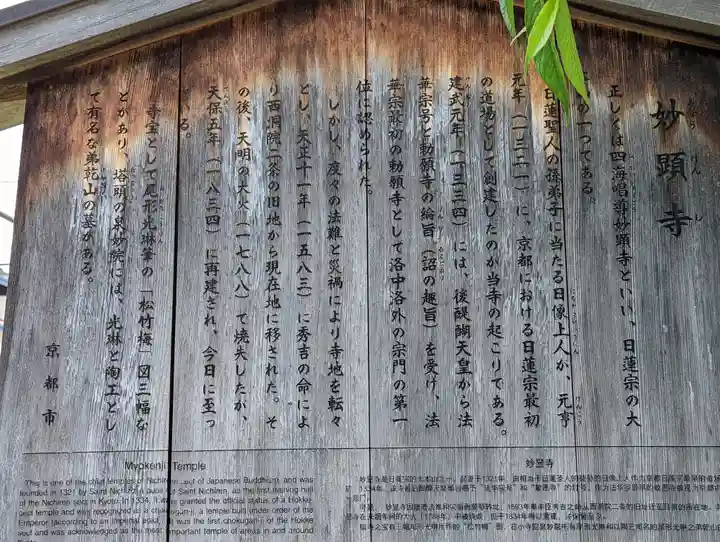 妙顕寺
正しくは四海唱導妙顕寺といい、日蓮宗の大
の一つである。
日蓮聖人の孫弟子に当たる日像上人が、元亨
元年（一三二一）に、京都における日蓮宗最初
の道場として創建したのが当寺の起こりである。
建武元年（一三三四）には、後醍醐天皇から法
華宗号と勅願寺の綸旨（詔の趣旨）を受け、法
華宗最初の勅願寺として洛中洛外の宗門の第一
位に認められた。
しかし、度々の法難と災禍により寺地を転々
とし、天正十一年（一五八三）に秀吉の命によ
り西洞院二条の旧地から現在地に移された。そ
の後、天明の大火（一七八八）で焼失したが、
天保五年（一八三四）に再建され、今日に至っ
ている。
寺宝として尾形光琳筆の「松竹梅」図三幅な
どがあり、塔頭の泉妙院には、光琳と陶工とし
て有名な弟乾山の墓がある。
京都市
Myokenji Temple
This is one of the chief temples of Nichiren sect of Japanese Buddhism, and was
founded in 1321 by Saint Nichizo, a pupil of Saint Nichiren, as the first training hall
of the Nichiren sect in Kyoto. In 1334, it was granted the official status of a Hokke
sect temple and was recognized as a chokugan-ji, a temple built under order of the
Emperor (according to an imperial edict). It was the first chokugan-ji of the Hokke
sect and was acknowledged as the most important temple of areas in and around
妙显寺